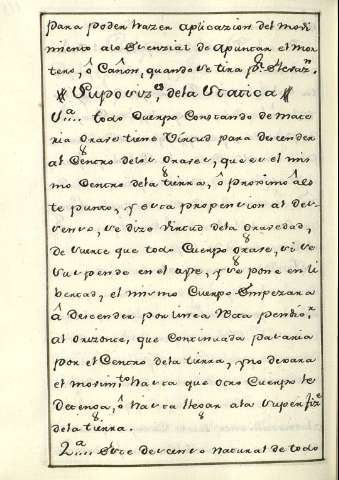 para poder hazer aplicazion del movi
miento alo esenzial de apuntar el mor
tero, ô Cañon, quando se tira pr. elevazn.
Suposizes. dela Statica
1a.... todo Cuerpo Constando de mate
ria Grave tiene Virtud para descender
al Centro delos Graves, que es el mis
mo Centro dela tierra, ô proximo âes
te punto, y esta propension al des
censo, se dize virtud dela Gravedad,
de suerte que todo Cuerpo Grave, si se
suspende en el ayre, y se pone en li
bertad, el mismo Cuerpo Empezara
â descender por linea Recta pendicr.
al orizonte, que Continuada pasaria
por el Centro dela tierra, y no dexara
el movimto. hasta que otro Cuerpo le
Detenga, ô hasta llegar ala superfize
dela tierra.
2a.... Este descenso natural de todo